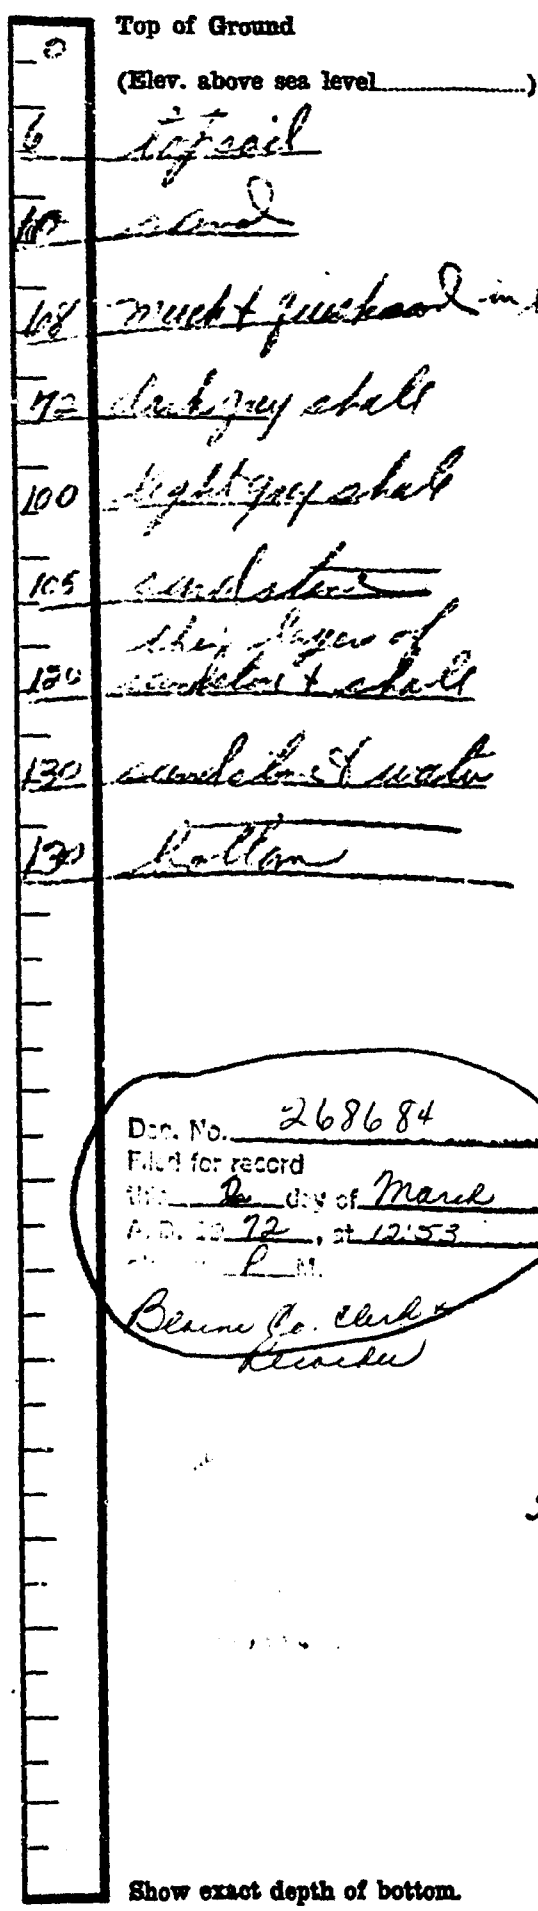 0 Top of Ground
(Elev. above sea level)
6 top soil
10 sand
68 muck & quicksand in
72 dark grey shale
100 light grey shale
105 sandstone
layers of
120 sandstone & shale
130 sandstone & water
130 bottom
Doc. No. 268684
Filed for record
this day of March
A.D. 19 72, at 12:53
P M.
Blaine Co. Clerk &
Recorder
Show exact depth of bottom.